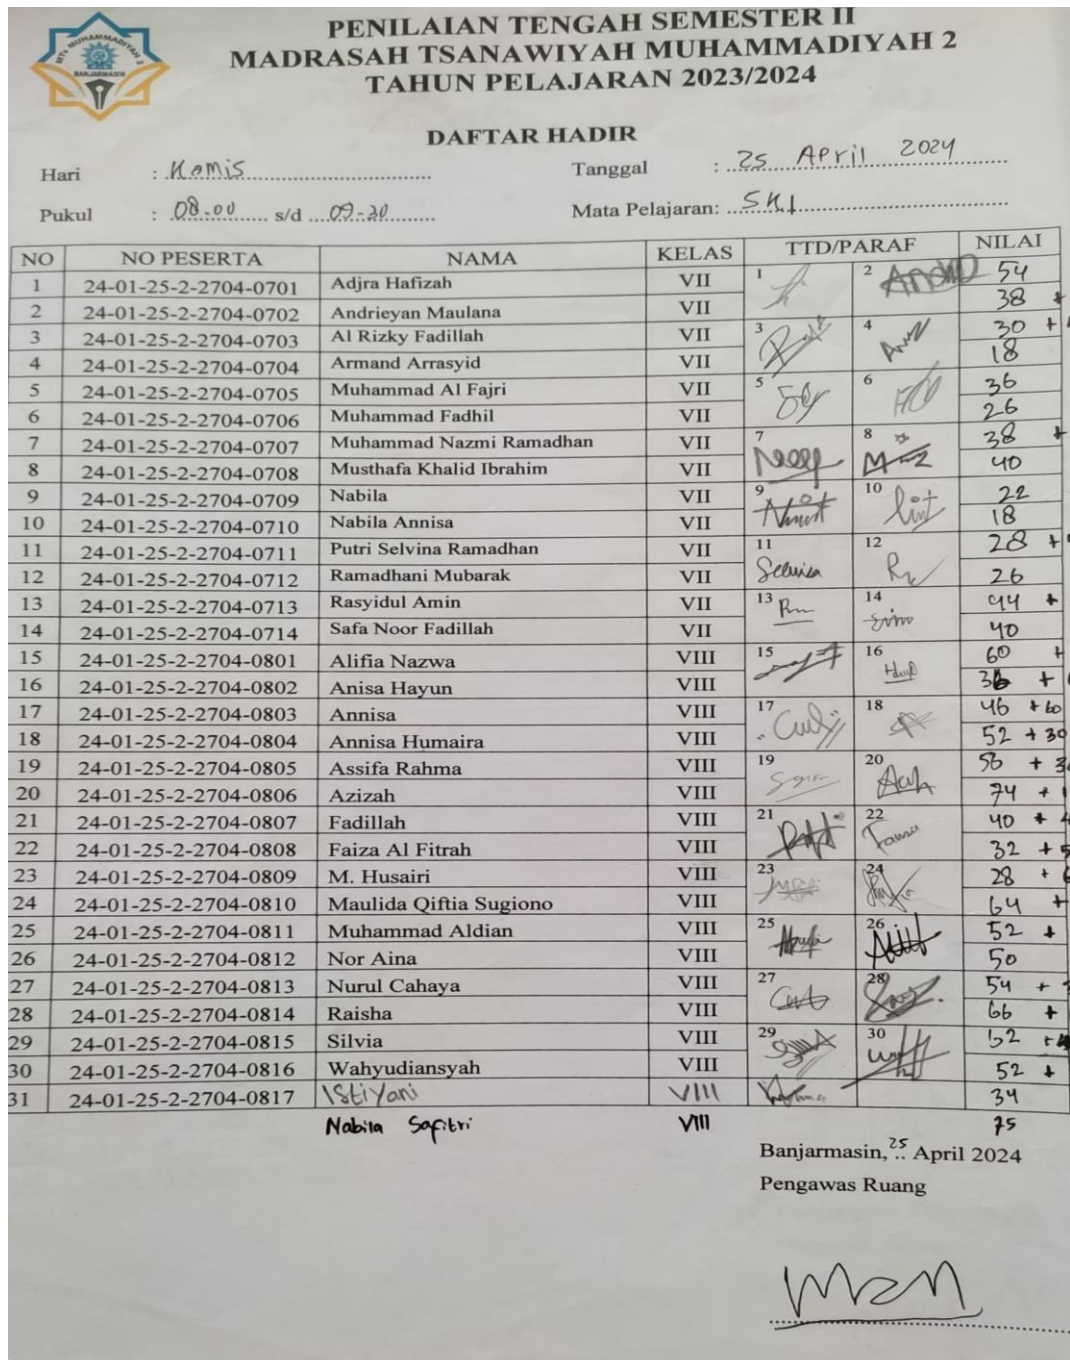 MTs MUHAMMADIYAH 2
BANJARMASIN
PENILAIAN TENGAH SEMESTER II
MADRASAH TSANAWIYAH MUHAMMADIYAH 2
TAHUN PELAJARAN 2023/2024
DAFTAR HADIR
Hari : Kamis Tanggal : 25 April 2024
Pukul : 08.00 s/d 09.20 Mata Pelajaran: SKI
NO NO PESERTA NAMA KELAS TTD/PARAF NILAI
1 24-01-25-2-2704-0701 Adjra Hafizah VII 1 2 54
2 24-01-25-2-2704-0702 Andrieyan Maulana VII 38 +
3 24-01-25-2-2704-0703 Al Rizky Fadillah VII 3 4 30 +
4 24-01-25-2-2704-0704 Armand Arrasyid VII 18
5 24-01-25-2-2704-0705 Muhammad Al Fajri VII 5 6 36
6 24-01-25-2-2704-0706 Muhammad Fadhil VII 26
7 24-01-25-2-2704-0707 Muhammad Nazmi Ramadhan VII 7 8 38 +
8 24-01-25-2-2704-0708 Musthafa Khalid Ibrahim VII 40
9 24-01-25-2-2704-0709 Nabila VII 9 10 22
10 24-01-25-2-2704-0710 Nabila Annisa VII 18
11 24-01-25-2-2704-0711 Putri Selvina Ramadhan VII 11 12 28 +
12 24-01-25-2-2704-0712 Ramadhani Mubarak VII 26
13 24-01-25-2-2704-0713 Rasyidul Amin VII 13 14 44 +
14 24-01-25-2-2704-0714 Safa Noor Fadillah VII 40
15 24-01-25-2-2704-0801 Alifia Nazwa VIII 15 16 60 +
16 24-01-25-2-2704-0802 Anisa Hayun VIII 36 +
17 24-01-25-2-2704-0803 Annisa VIII 17 18 46 + 60
18 24-01-25-2-2704-0804 Annisa Humaira VIII 52 + 30
19 24-01-25-2-2704-0805 Assifa Rahma VIII 19 20 56 +
20 24-01-25-2-2704-0806 Azizah VIII 74 +
21 24-01-25-2-2704-0807 Fadillah VIII 21 22 40 +
22 24-01-25-2-2704-0808 Faiza Al Fitrah VIII 32 +
23 24-01-25-2-2704-0809 M. Husairi VIII 23 24 28 +
24 24-01-25-2-2704-0810 Maulida Qiftia Sugiono VIII 64 +
25 24-01-25-2-2704-0811 Muhammad Aldian VIII 25 26 52 +
26 24-01-25-2-2704-0812 Nor Aina VIII 50
27 24-01-25-2-2704-0813 Nurul Cahaya VIII 27 28 54 +
28 24-01-25-2-2704-0814 Raisha VIII 66 +
29 24-01-25-2-2704-0815 Silvia VIII 29 30 52 +
30 24-01-25-2-2704-0816 Wahyudiansyah VIII 52 +
31 24-01-25-2-2704-0817 Istiyani VIII 34
Nabila Safitri VIII 75
Banjarmasin, 25 April 2024
Pengawas Ruang